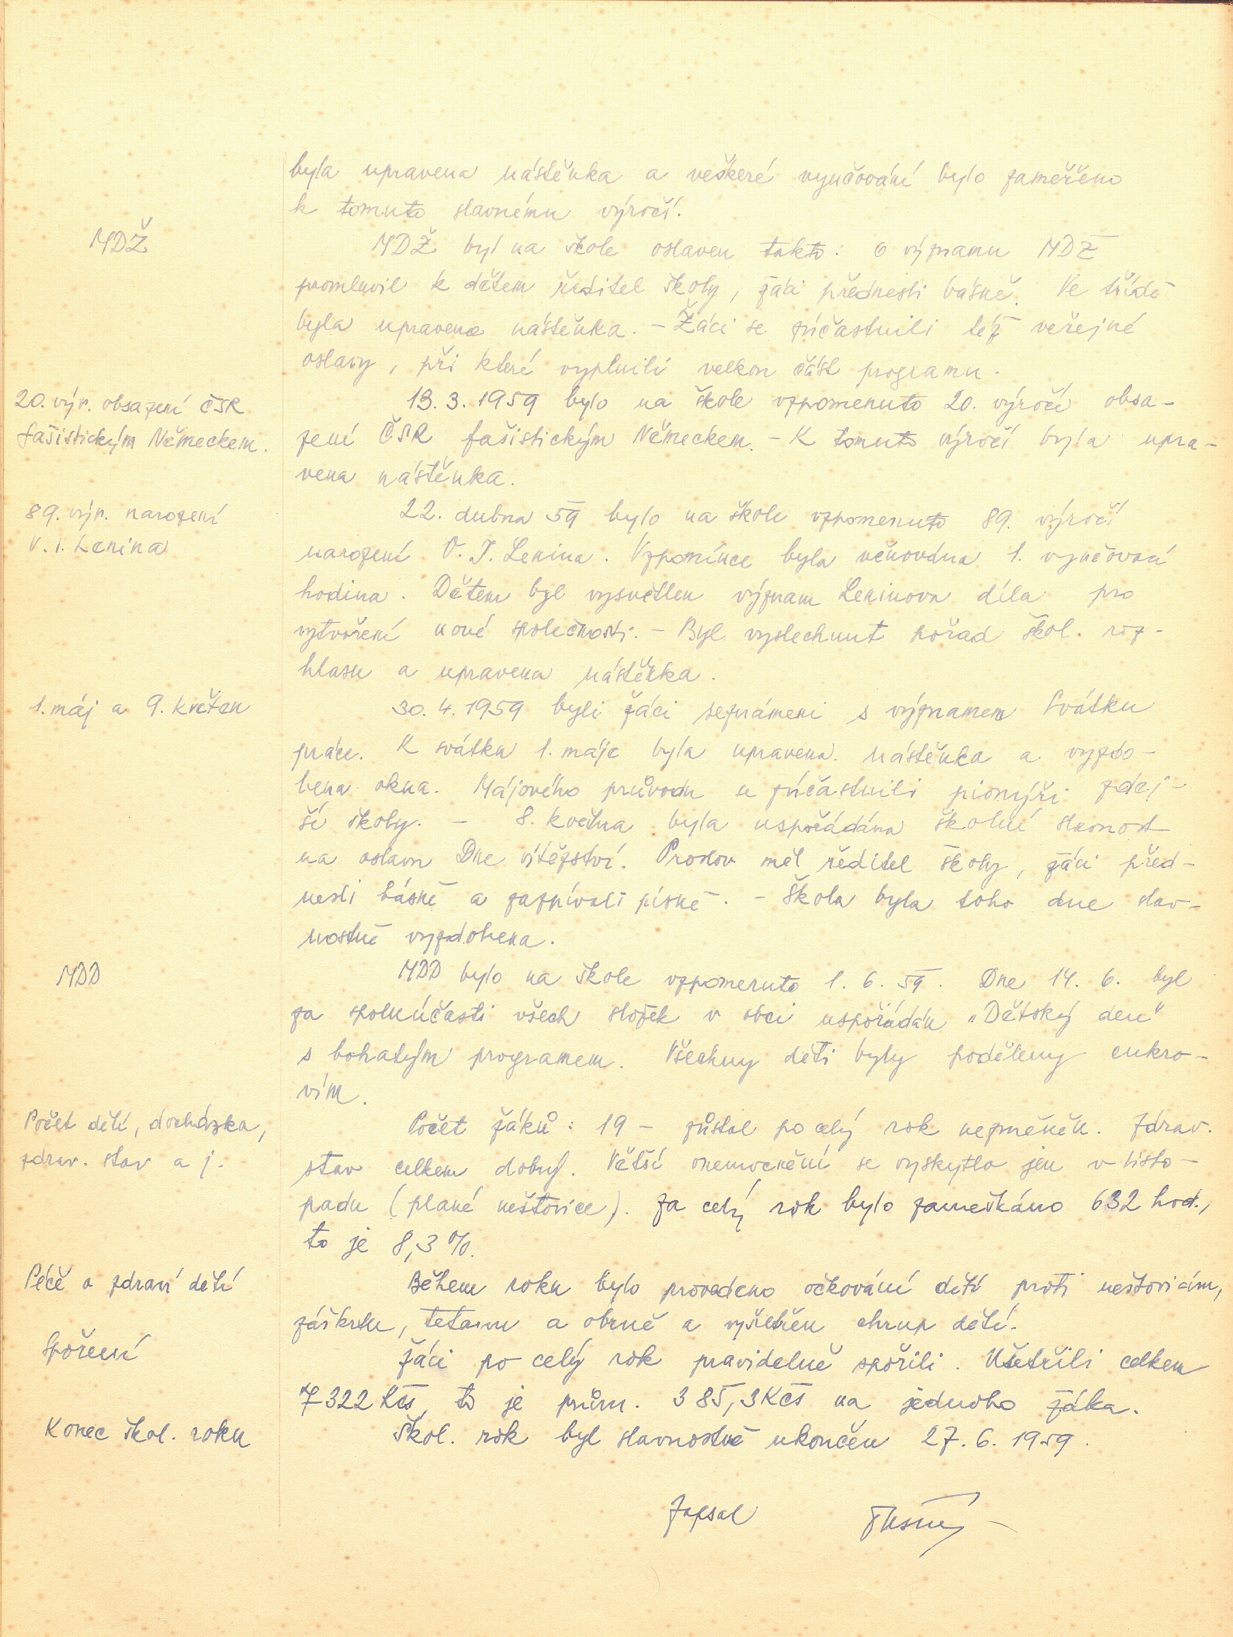 byla upravena nástěnka a veškeré vyučování bylo zaměřeno
k tomuto slavnému výročí.
MDŽ
MDŽ byl na škole oslaven takto: o významu MDŽ
promluvil k dětem ředitel školy, žáci přednesli básně. Ve třídě
byla upravena nástěnka. – Žáci se zúčastnili též veřejné
oslavy, při které vyplnili velkou část programu.
20. výr. obsazení ČSR
fašistickým Německem.
13. 3. 1959 bylo na škole vzpomenuto 20. výročí obsa-
zení ČSR fašistickým Německem. – K tomuto výročí byla upra-
vena nástěnka.
89. výr. narození
V. I. Lenina
22. dubna 59 bylo na škole vzpomenuto 89. výročí
narození V. I. Lenina. Vzpomínce byla věnována 1. vyučovací
hodina. Dětem byl vysvětlen význam Leninova díla pro
vytvoření nové společnosti. – Byl vyslechnut pořad škol. roz-
hlasu a upravena nástěnka.
1. máj a 9. květen
30. 4. 1959 byli žáci seznámeni s významem Svátku
práce. K svátku 1. máje byla upravena nástěnka a vyzdo-
bena okna. Májového průvodu se zúčastnili pionýři zdej-
ší školy. – 8. května byla uspořádána školní slavnost
na oslavu Dne vítězství. Proslov měl ředitel školy, žáci před-
nesli básně a zazpívali písně. – Škola byla toho dne slav-
nostně vyzdobena.
MDD
MDD bylo na škole vzpomenuto 1. 6. 59. Dne 14. 6. byl
za spoluúčasti všech složek v obci uspořádán "Dětský den"
s bohatým programem. Všechny děti byly poděleny cukro-
vím.
Počet dětí, docházka,
zdrav. stav a j.
Počet žáků: 19 – zůstal po celý rok nezměněn. Zdrav.
stav celkem dobrý. Větší onemocnění se vyskytlo jen v listo-
padu (plané neštovice). Za celý rok bylo zameškáno 632 hod.,
to je 8,3 %.
Péče o zdraví dětí
Během roku bylo provedeno očkování dětí proti neštovicím,
záškrtu, tetanu a obrně a vyšetřen chrup dětí.
Spoření
Žáci po celý rok pravidelně spořili. Ušetřili celkem
7322 Kčs, to je prům. 385,3 Kčs na jednoho žáka.
Konec škol. roku
Škol. rok byl slavnostně ukončen 27. 6. 1959.
Zapsal